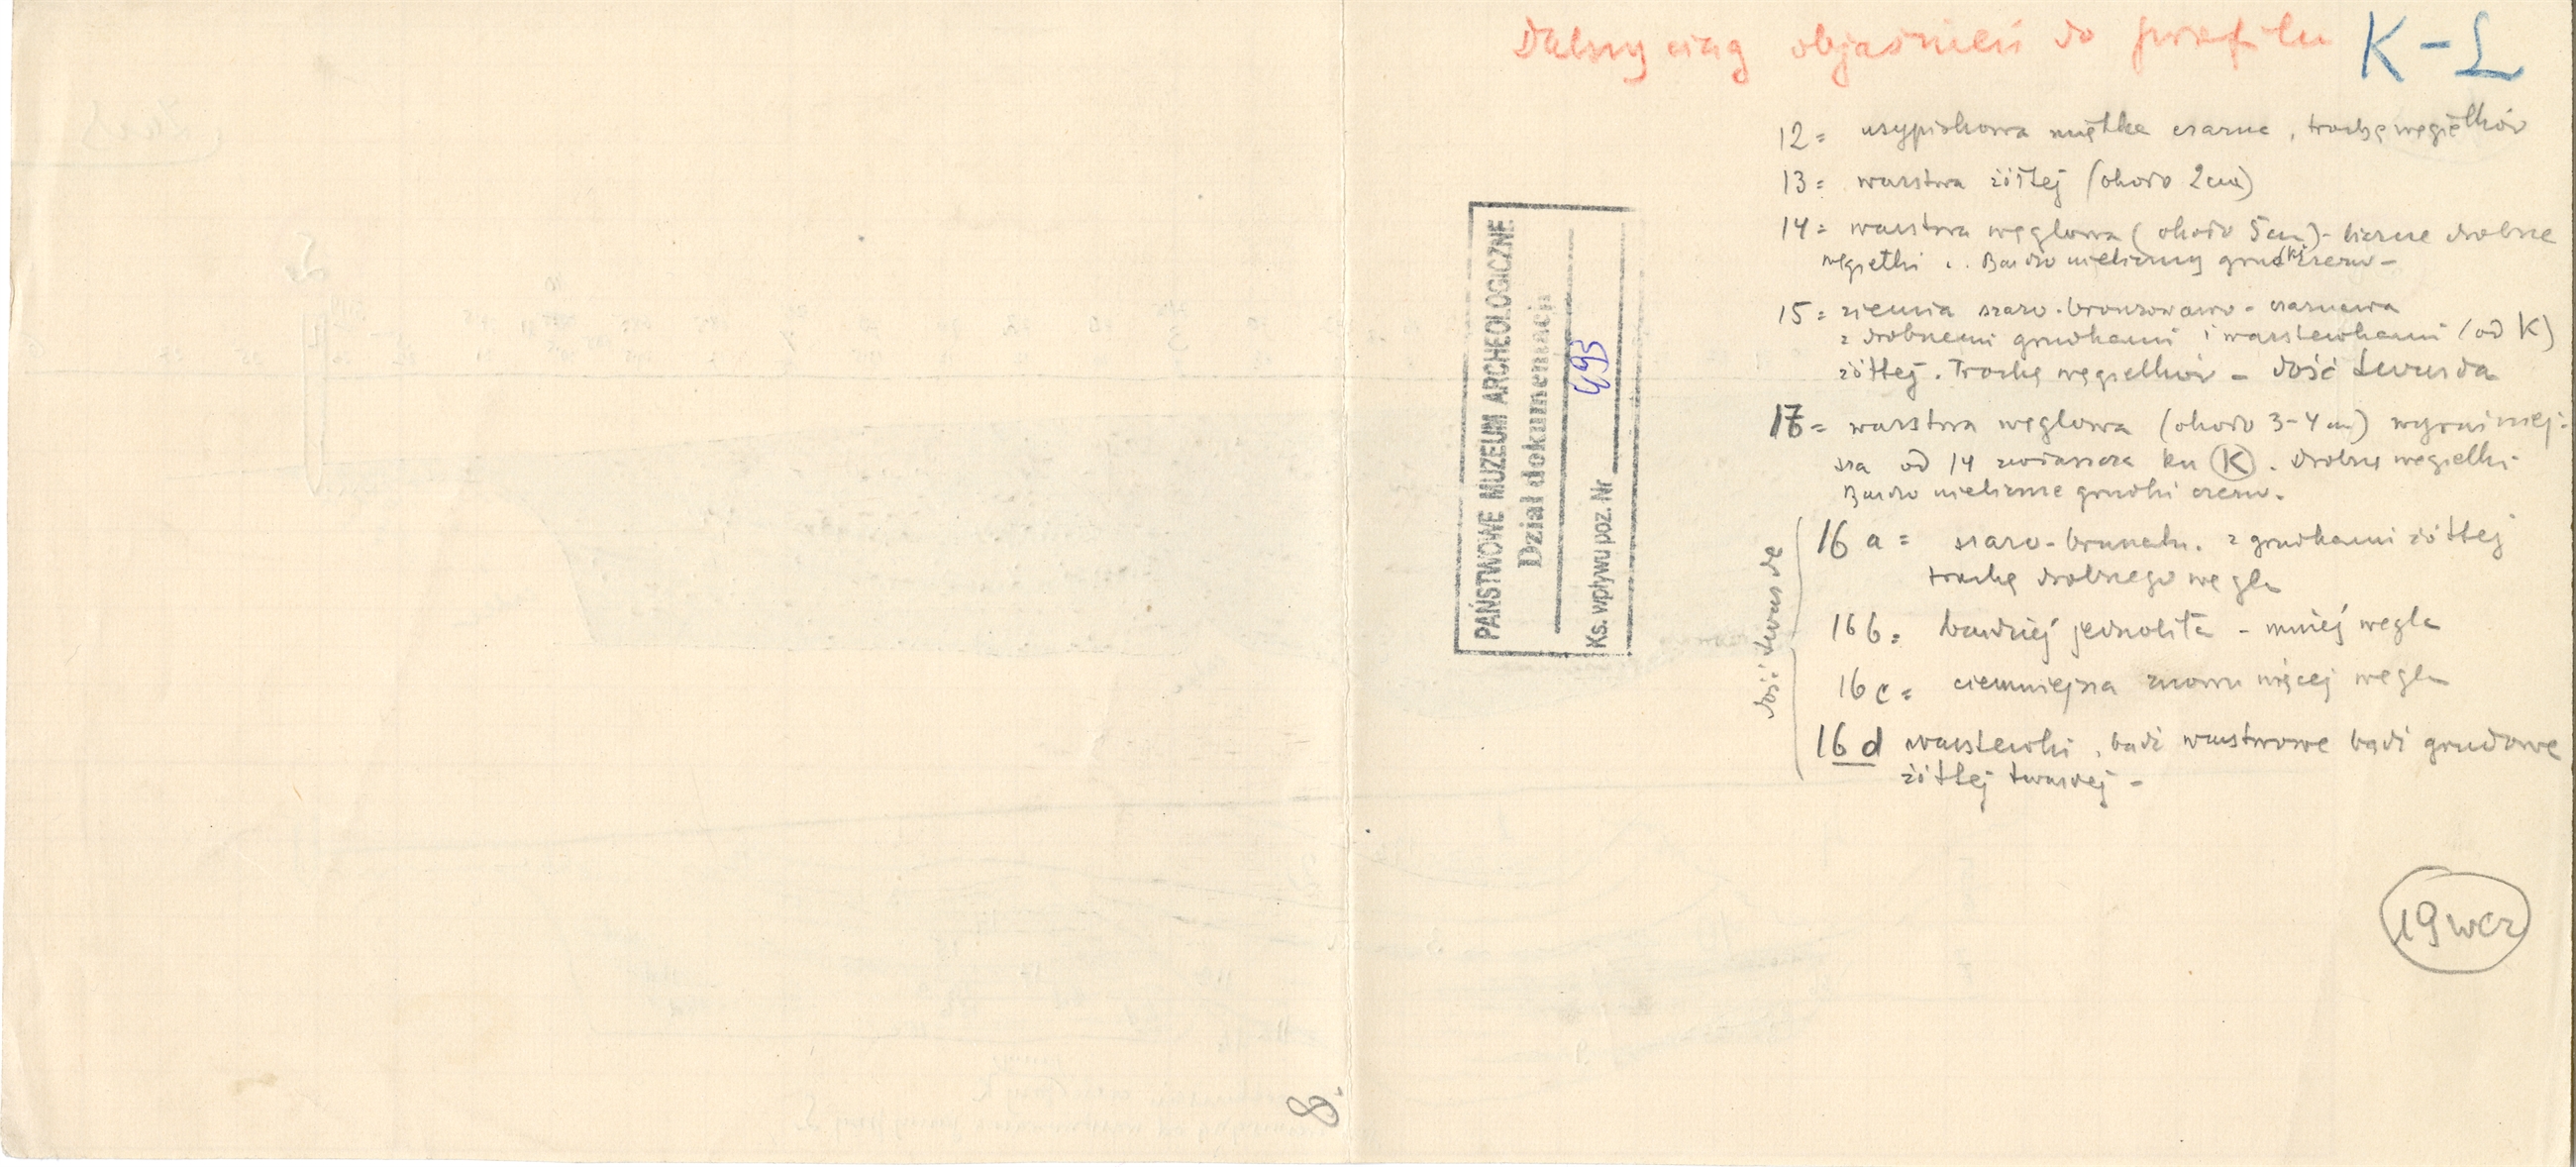 Dalszy ciąg objaśnień do profilu K-L
12 = usypiskowa miętka czarna, trochę węgielków
13 = warstwa żółtej (około 2 cm)
14 = warstwa węglowa (około 5 cm) - liczne drobne
węgielki . Bardzo nieliczny grudki czerw -
15 = ziemia szaro-bronzowawo-czarnawa
z drobnemi grudkami i warstewkami (od K)
żółtej. Trochę węgielków - dość twarda
17 = warstwa węglowa (około 3-4 cm) wyraźniej-
sza od 14 zwłaszcza ku K. Drobne węgielki
Bardzo nieliczne grudki czerw.
dość twarde
16 a = szaro-brunatn. z grudkami żółtej
trochę drobnego węgla
16 b = bardziej jednolita - mniej węgla
16 c = ciemniejsza znowu więcej węgla
16 d warstewki, bądź warstwowe bądź grudowe
żółtej twardej -
19 wcz
PAŃSTWOWE MUZEUM ARCHEOLOGICZNE
Dział dokumentacji
Ks. wpływu poz. Nr 493
8.